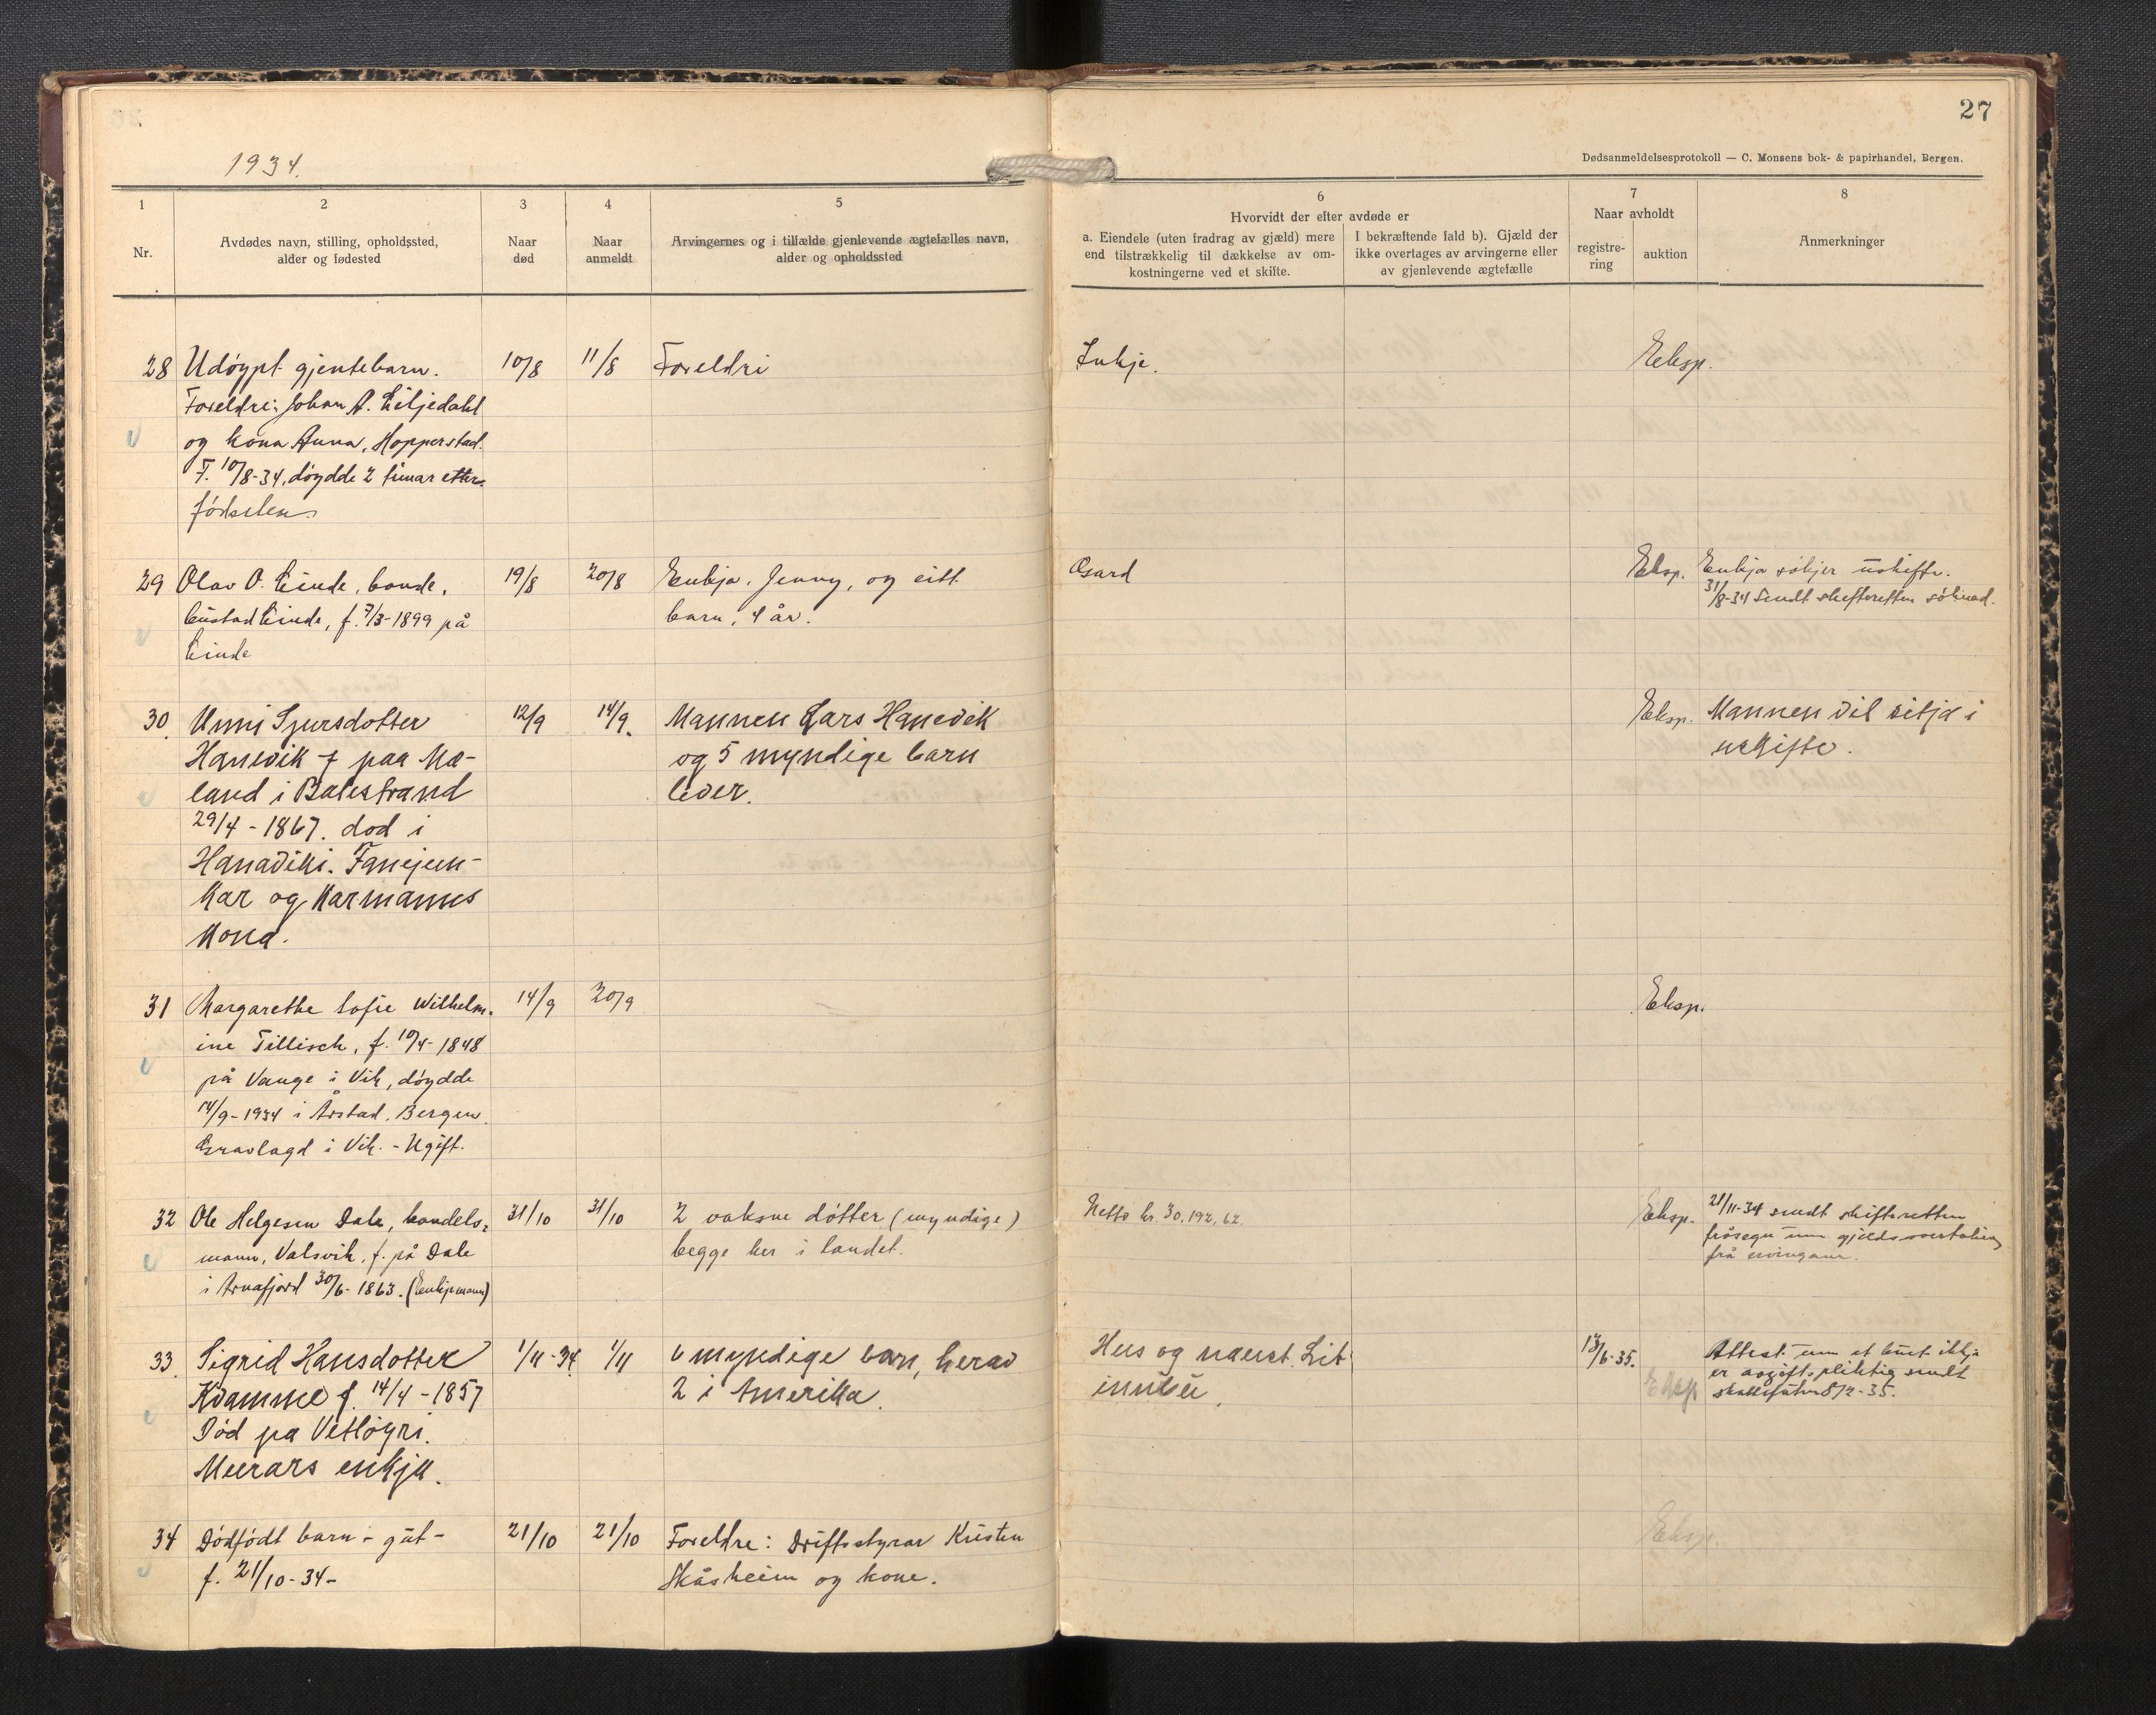 27
Dødsanmeldelsesprotokoll — C. Monsens bok- & papirhandel, Bergen.
1934.
1
2
3
4
5
6
7
8
Nr.
Avdødes navn, stilling, opholdssted,
alder og fødested
Naar
død
Naar
anmeldt
Arvingernes og i tilfælde gjenlevende ægtefælles navn,
alder og opholdssted
Hvorvidt der efter avdøde er
a. Eiendele (uten fradrag av gjæld) mere
end tilstrækkelig til dækkelse av om-
kostningerne ved et skifte.
I bekræftende fald b). Gjæld der
ikke overtages av arvingerne eller
av gjenlevende ægtefælle
Naar avholdt
registre-
ring
auktion
Anmerkninger
28 Udøypt gjentebarn. 10/8 11/8 Foreldri Inkje. Eksp.
Foreldre: Johan A. Liljedahl
og kona Anna, Hopperstad.
F. 10/8-34, døydde 2 timar etter
fødselen.
29 Olav O. Linde, bonde, 19/8 20/8 Enkja, Jenny, og eitt Gard Eksp. Enkja søkjer uskifte.
bustad Linde, f. 7/3-1899 på barn, 4 år. 31/8-34 Sendt skifteretten søknad.
Linde
30. Unni Sjursdotter 12/9 14/9. Mannen Lars Hanevik Eksp. Mannen vil sitja i
Hanevik f paa Mæ- og 5 myndige barn uskifte.
land i Balestrand lever.
29/4-1867. dod i
Hanaviki. Fanejun-
kar og Karmanns
Kona.
31 Margarethe Sofie Wilhelm- 14/9 20/9 Eksp.
ine Tillisch, f. 10/4-1848
på Vange i Vik, døydde
14/9-1934 i Årstad, Bergen.
Gravlagd i Vik. - Ugift.
32 Ole Helgesen Dale, handels- 31/10 31/10 2 vaksne døtter (myndige) Netto kr. 30,192,62. Eksp. 21/11-34 sendt skifteretten
mann, Valsvik, f. på Dale begge her i landet. fråsegn um gjeldsovertaking
i Arnafjord 30/6-1863. (Enkjemann) frå ervingane.
33. Sigrid Hansdotter 1/11-34 1/11 6 myndige barn, herav Hus og naust. Lit 13/6-35. Attest um at buet ikkje
Kvamme f. 14/4-1857 2 i Amerika. innbu. Eksp er avgiftspliktig sendt
Død pa Vetløyri. skattefuten 8/2-35.
Murars enkja.
34 Dødfødt barn - gut - 21/10 21/10 Foreldre: Driftsstyrar Kristen Eksp.
f. 21/10-34- Skåsheim og kone.